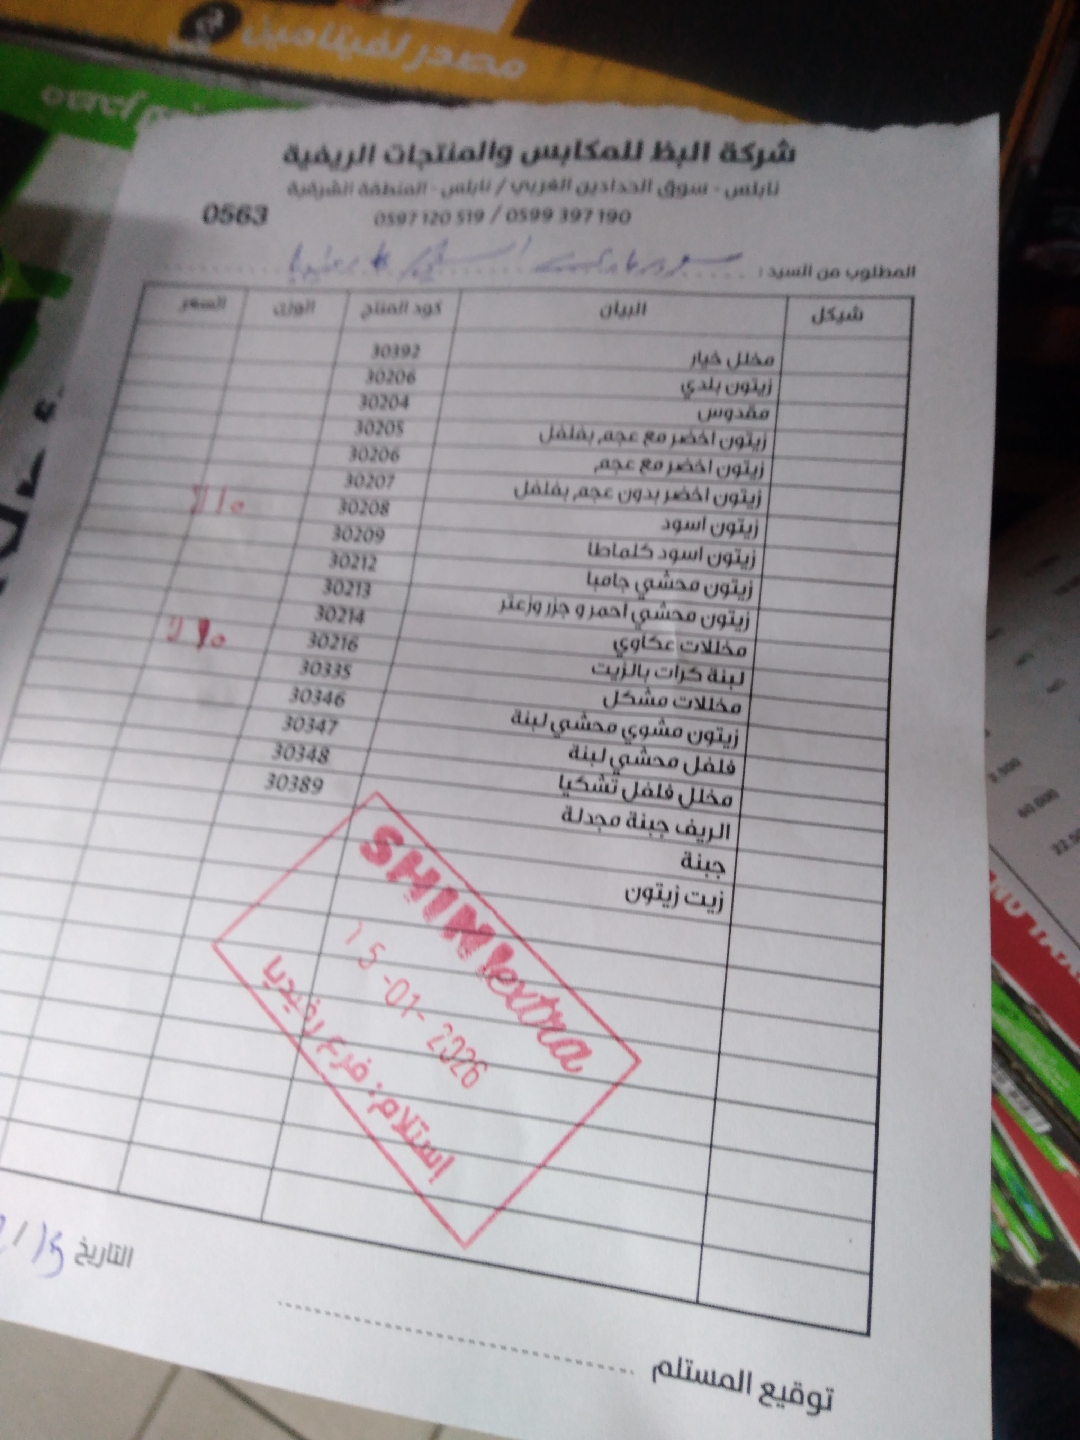 مصدر لفيتامين
شركة البظ للمكابس والمنتجات الريفية
نابلس - سوق الحدادين الغربي / نابلس - المنطقة الشرقية
0599 397 190 / 0597 120 519
0563
المطلوب من السيد :
شيكل البيان كود المنتج الوزن السعر
مخلل خيار 30392
زيتون بلدي 30206
مقدوس 30204
زيتون اخضر مع عجم بفلفل 30205
زيتون اخضر مع عجم 30206
زيتون اخضر بدون عجم بفلفل 30207
زيتون اسود 30208
زيتون اسود كلماطا 30209
زيتون محشي جامبا 30212
زيتون محشي احمر و جزر وزعتر 30213
مخللات عكاوي 30214
لبنة كرات بالزيت 30216
مخللات مشكل 30335
زيتون مشوي محشي لبنة 30346
فلفل محشي لبنة 30347
مخلل فلفل تشكيا 30348
الريف جبنة مجدلة 30389
جبنة
زيت زيتون
SHINI extra
15-01-2026
إستلام: فرع رفيديا
التاريخ
توقيع المستلم